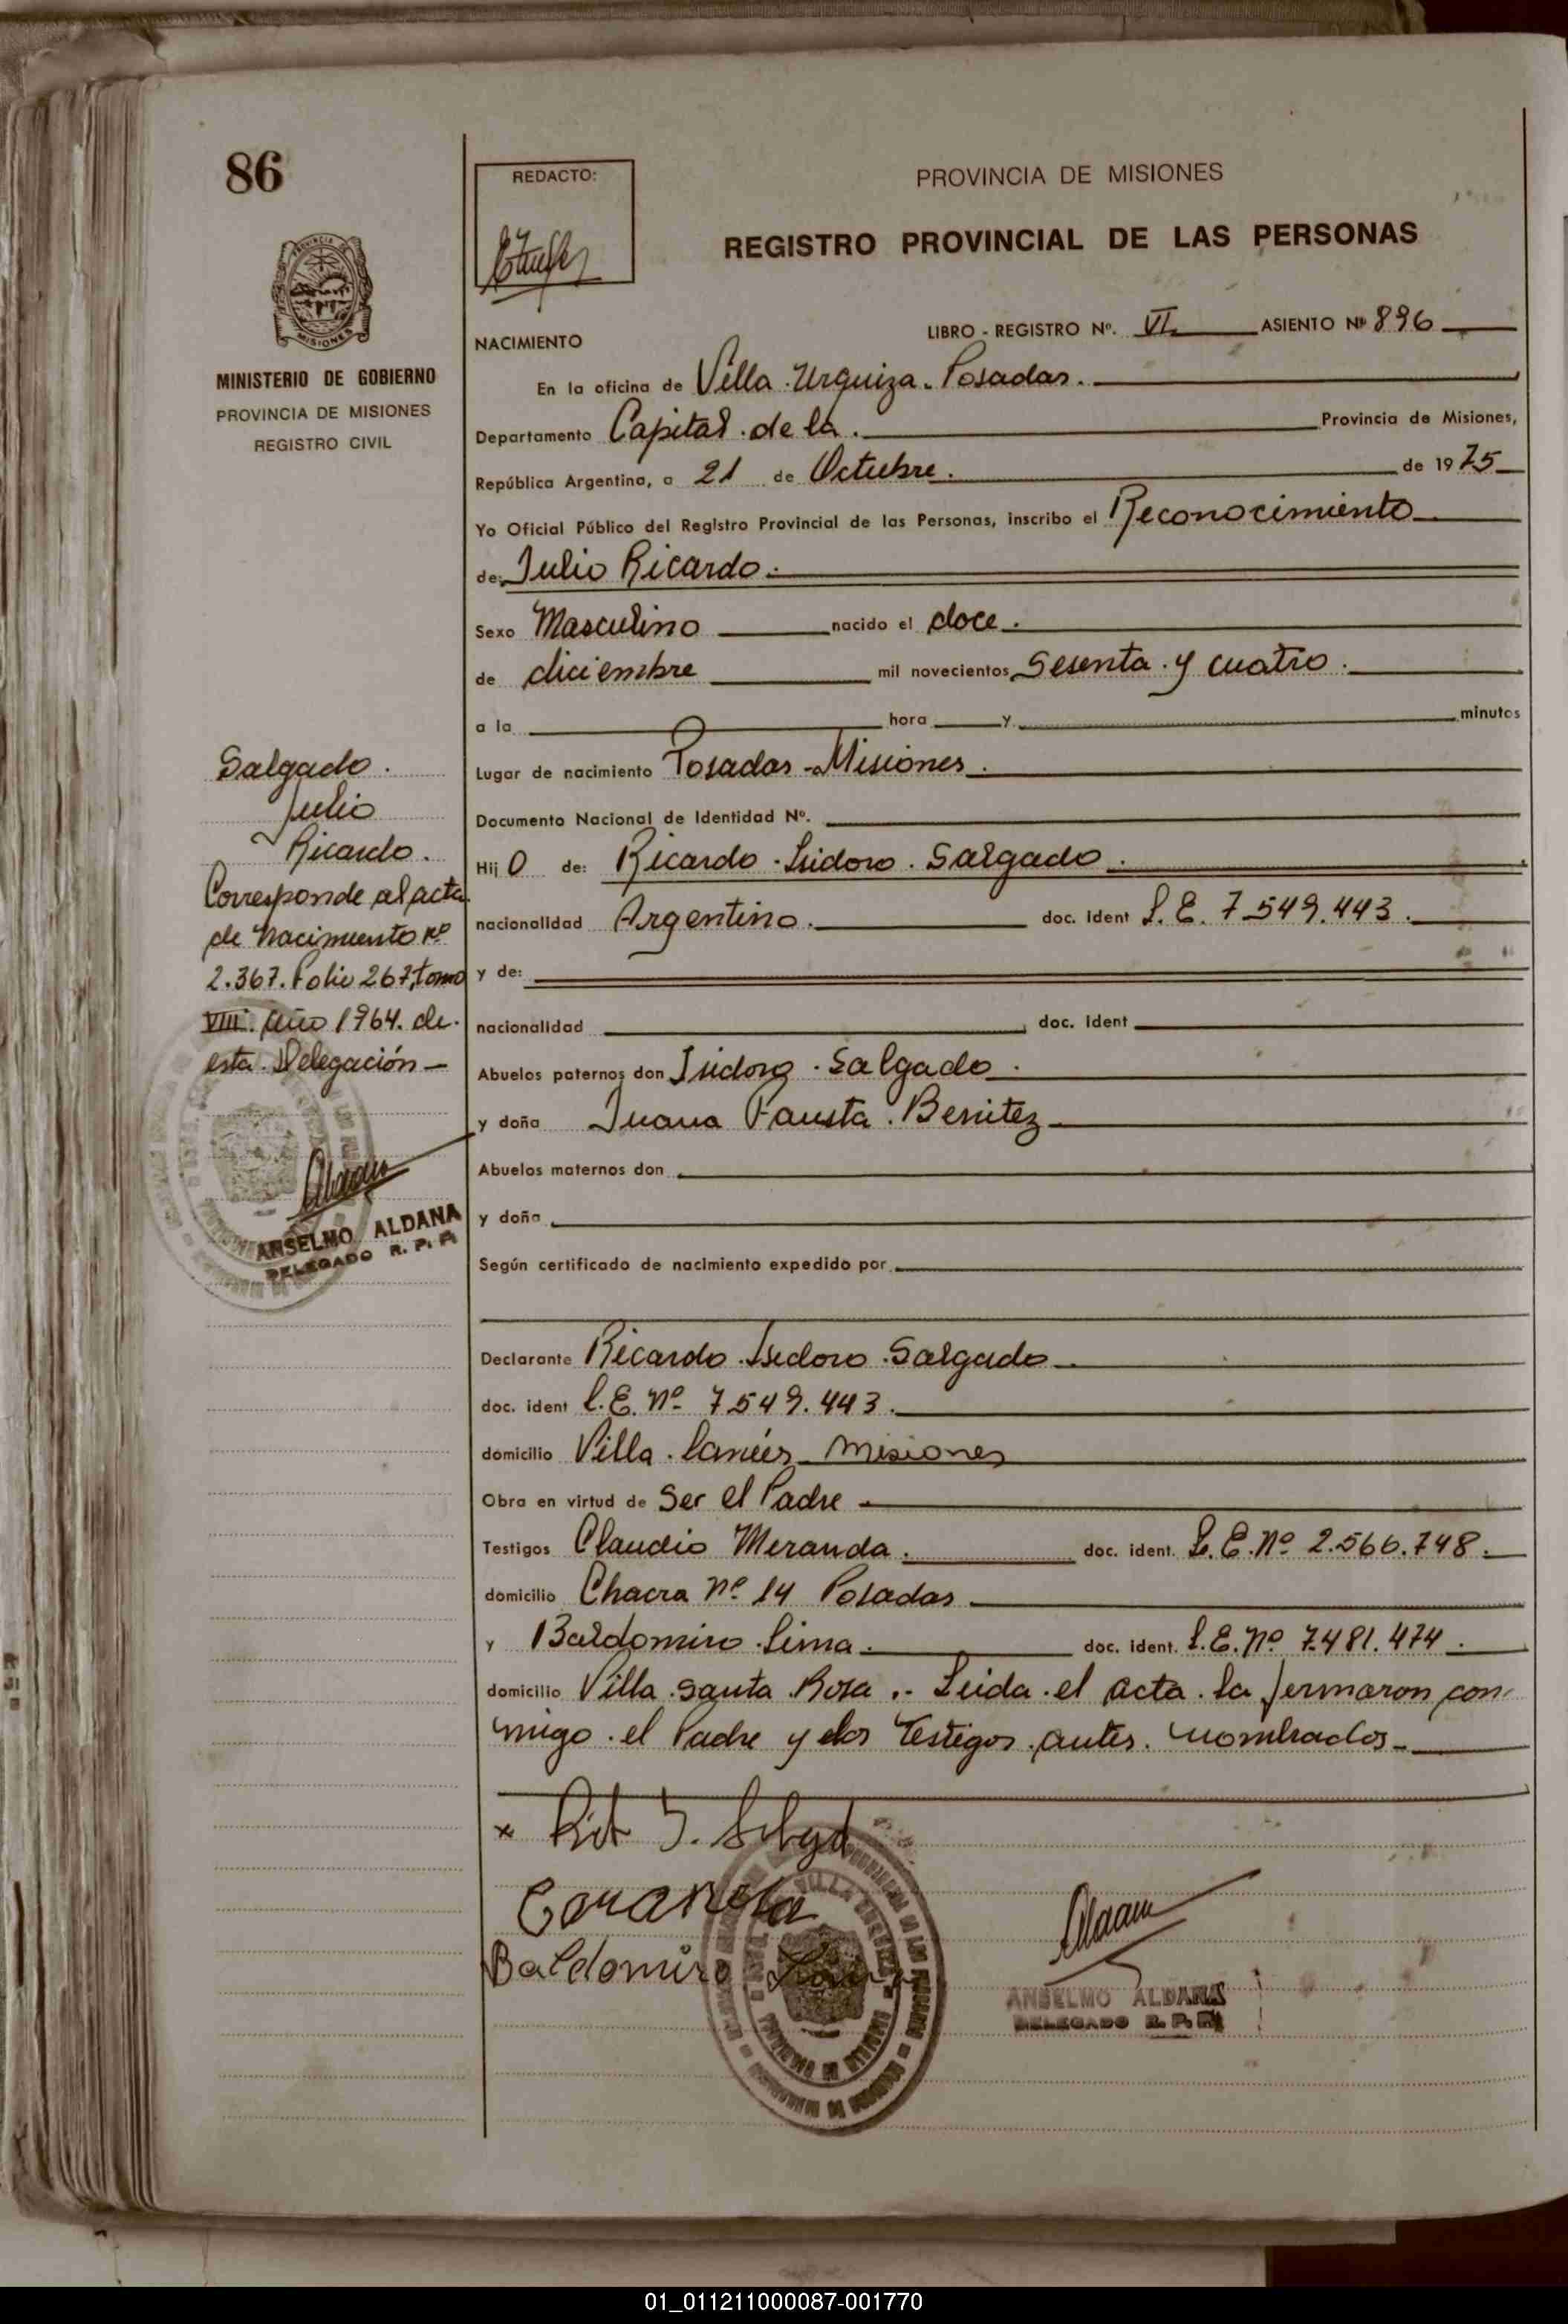 86
REDACTO:
PROVINCIA DE MISIONES
REGISTRO PROVINCIAL DE LAS PERSONAS
MISIONES
MINISTERIO DE GOBIERNO
PROVINCIA DE MISIONES
REGISTRO CIVIL
LIBRO - REGISTRO Nº. VI ASIENTO Nº 896
NACIMIENTO
En la oficina de Villa Urquiza. Posadas.
Departamento Capital de la. Provincia de Misiones,
República Argentina, a 21 de Octubre. de 1975
Yo Oficial Público del Registro Provincial de las Personas, inscribo el Reconocimiento
de: Julio Ricardo.
Sexo Masculino nacido el doce.
de diciembre mil novecientos Sesenta y cuatro.
a la hora y minutos
Lugar de nacimiento Posadas - Misiones.
Documento Nacional de Identidad Nº.
Hij o de: Ricardo Isidoro Salgado.
nacionalidad Argentino. doc. Ident L.E. 7.549.443.
y de:
nacionalidad doc. Ident
Abuelos paternos don Isidoro Salgado.
y doña Juana Fausta Benitez
Abuelos maternos don
y doña
Según certificado de nacimiento expedido por
Declarante Ricardo Isidoro Salgado
doc. ident L.E. Nº 7.549.443.
domicilio Villa Misiones
Obra en virtud de Ser el Padre
Testigos Claudio Meranda. doc. ident. L.E. Nº 2.566.748.
domicilio Chacra Nº 14 Posadas
y Baldomiro Lima. doc. ident. L.E. Nº 7.481.474.
domicilio Villa Santa Rosa.- Leida el acta la fermaron con
migo el Padre y dos Testigos antes nombrados.
Salgado.
Julio
Ricardo.
Corresponde al acta
de Nacimiento Nº
2.367. Folio 267, tomo
VIII. Año 1964. de
esta Delegación
ANSELMO ALDANA
DELEGADO R. P. P.
Baldomiro
VILLA URQUIZA
ANSELMO ALDANA
DELEGADO R. P. P.
01_011211000087-001770